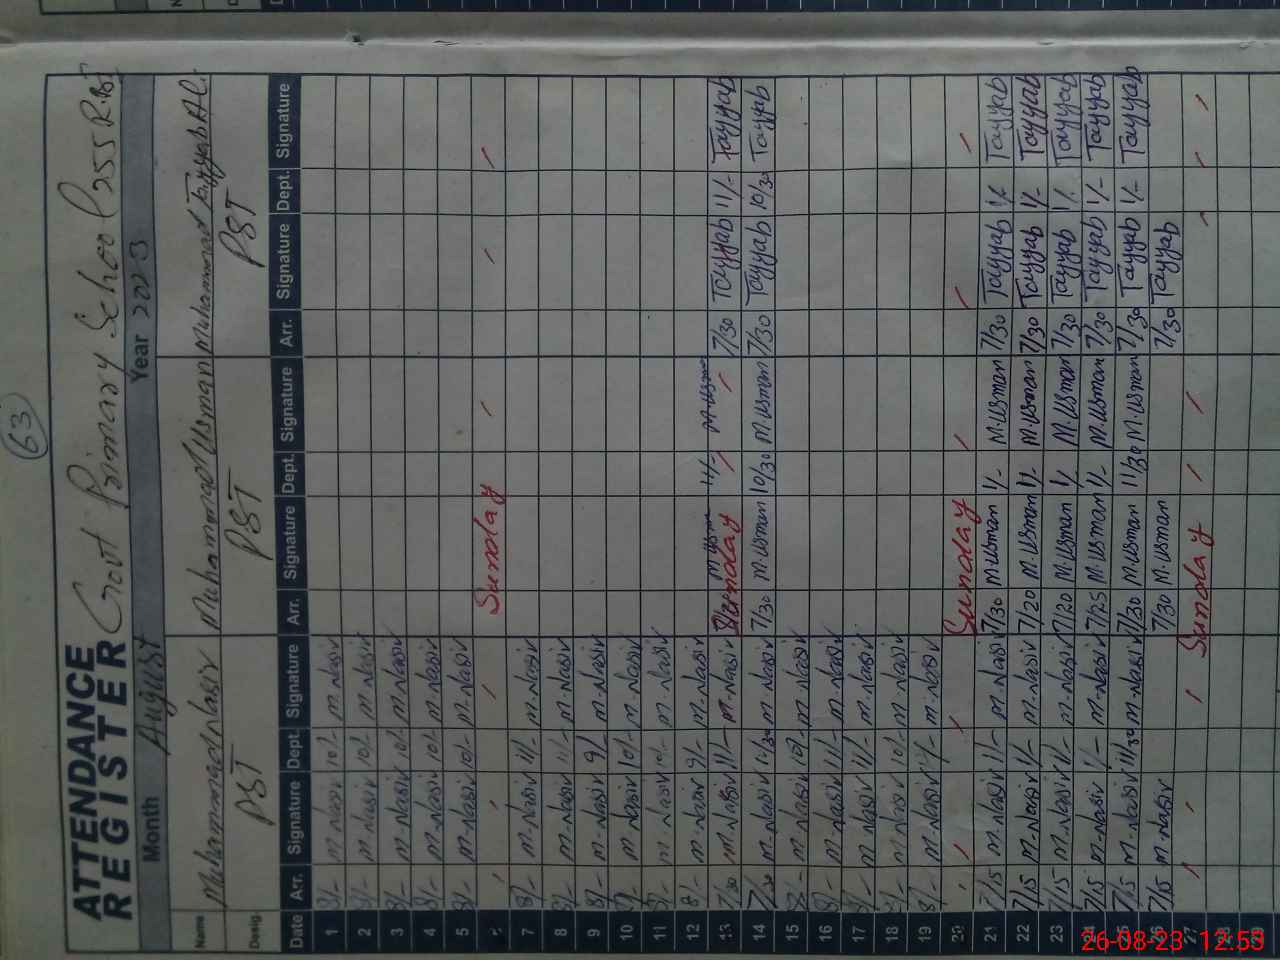 63
ATTENDANCE
REGISTER
Govt Primary School 255 R.B
Month August Year 2023
Name Muhammad Nasir Muhammad Usman Muhammad Tayyab Ali
Desig. PST PST PST
Date Arr. Signature Dept. Signature Arr. Signature Dept. Signature Arr. Signature Dept. Signature
1 8/- M. Nasir 10/- M. Nasir
2 8/- M. Nasir 10/- M. Nasir
3 8/- M. Nasir 10/- M. Nasir
4 8/- M. Nasir 10/- M. Nasir
5 8/- M. Nasir 10/- M. Nasir
6 Sunday
7 8/- M. Nasir 11/- M. Nasir
8 8/- M. Nasir 11/- M. Nasir
9 8/- M. Nasir 9/- M. Nasir
10 M. Nasir 10/- M. Nasir
11 M. Nasir 10/- M. Nasir
12 8/- M. Nasir 9/- M. Nasir
13 7/30 M. Nasir 11/- M. Nasir Sunday M. Usman 11/- M. Usman 7/30 Tayyab 11/- Tayyab
14 7/30 M. Nasir M. Nasir 7/30 M. Usman 10/30 M. Usman 7/30 Tayyab 10/30 Tayyab
15 8/- M. Nasir 10/- M. Nasir
16 8/- M. Nasir 11/- M. Nasir
17 8/- M. Nasir 11/- M. Nasir
18 8/- M. Nasir 10/- M. Nasir
19 8/- M. Nasir M. Nasir
20 Sunday
21 7/15 M. Nasir 11/- M. Nasir 7/30 M. Usman 1/- M. Usman 7/30 Tayyab 1/- Tayyab
22 7/15 M. Nasir 1/- M. Nasir 7/20 M. Usman 1/- M. Usman 7/30 Tayyab 1/- Tayyab
23 7/15 M. Nasir 1/- M. Nasir 7/20 M. Usman 1/- M. Usman 7/30 Tayyab 1/- Tayyab
24 7/15 M. Nasir 1/- M. Nasir 7/25 M. Usman 1/- M. Usman 7/30 Tayyab 1/- Tayyab
25 7/15 M. Nasir 11/30 M. Nasir 7/30 M. Usman 11/30 M. Usman 7/30 Tayyab 1/- Tayyab
26 7/15 M. Nasir 7/30 M. Usman 7/30 Tayyab
27 Sunday
28
29
26-08-23 12:53